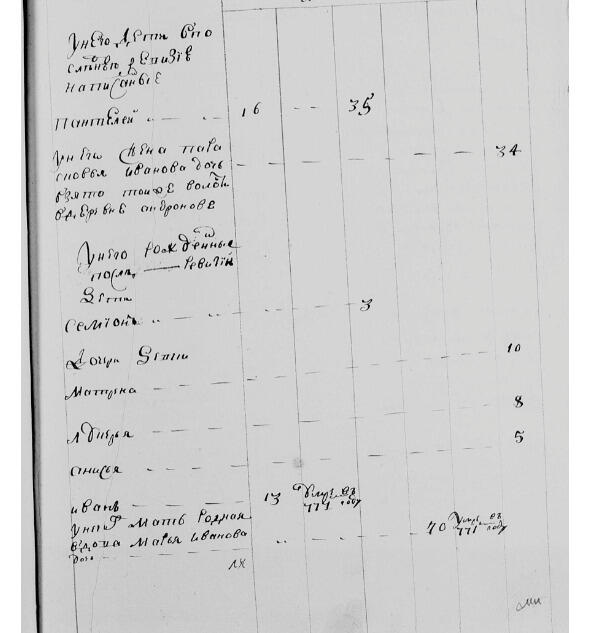 унего дети впо
следнею ревизiю
написанные
пантелей 16 35
унего жена пара
сковья иванова дочь 34
взято тоиже волости
вдеревне андронове
унего рожденные
после ревизiи
дети
семионъ 3
дочери 10
матрена
8
дарья
5
анисья
иванъ 13 умре въ 771 году
унихъ мать родная
вдова марья иванова 70 умре въ 771 году
дочь